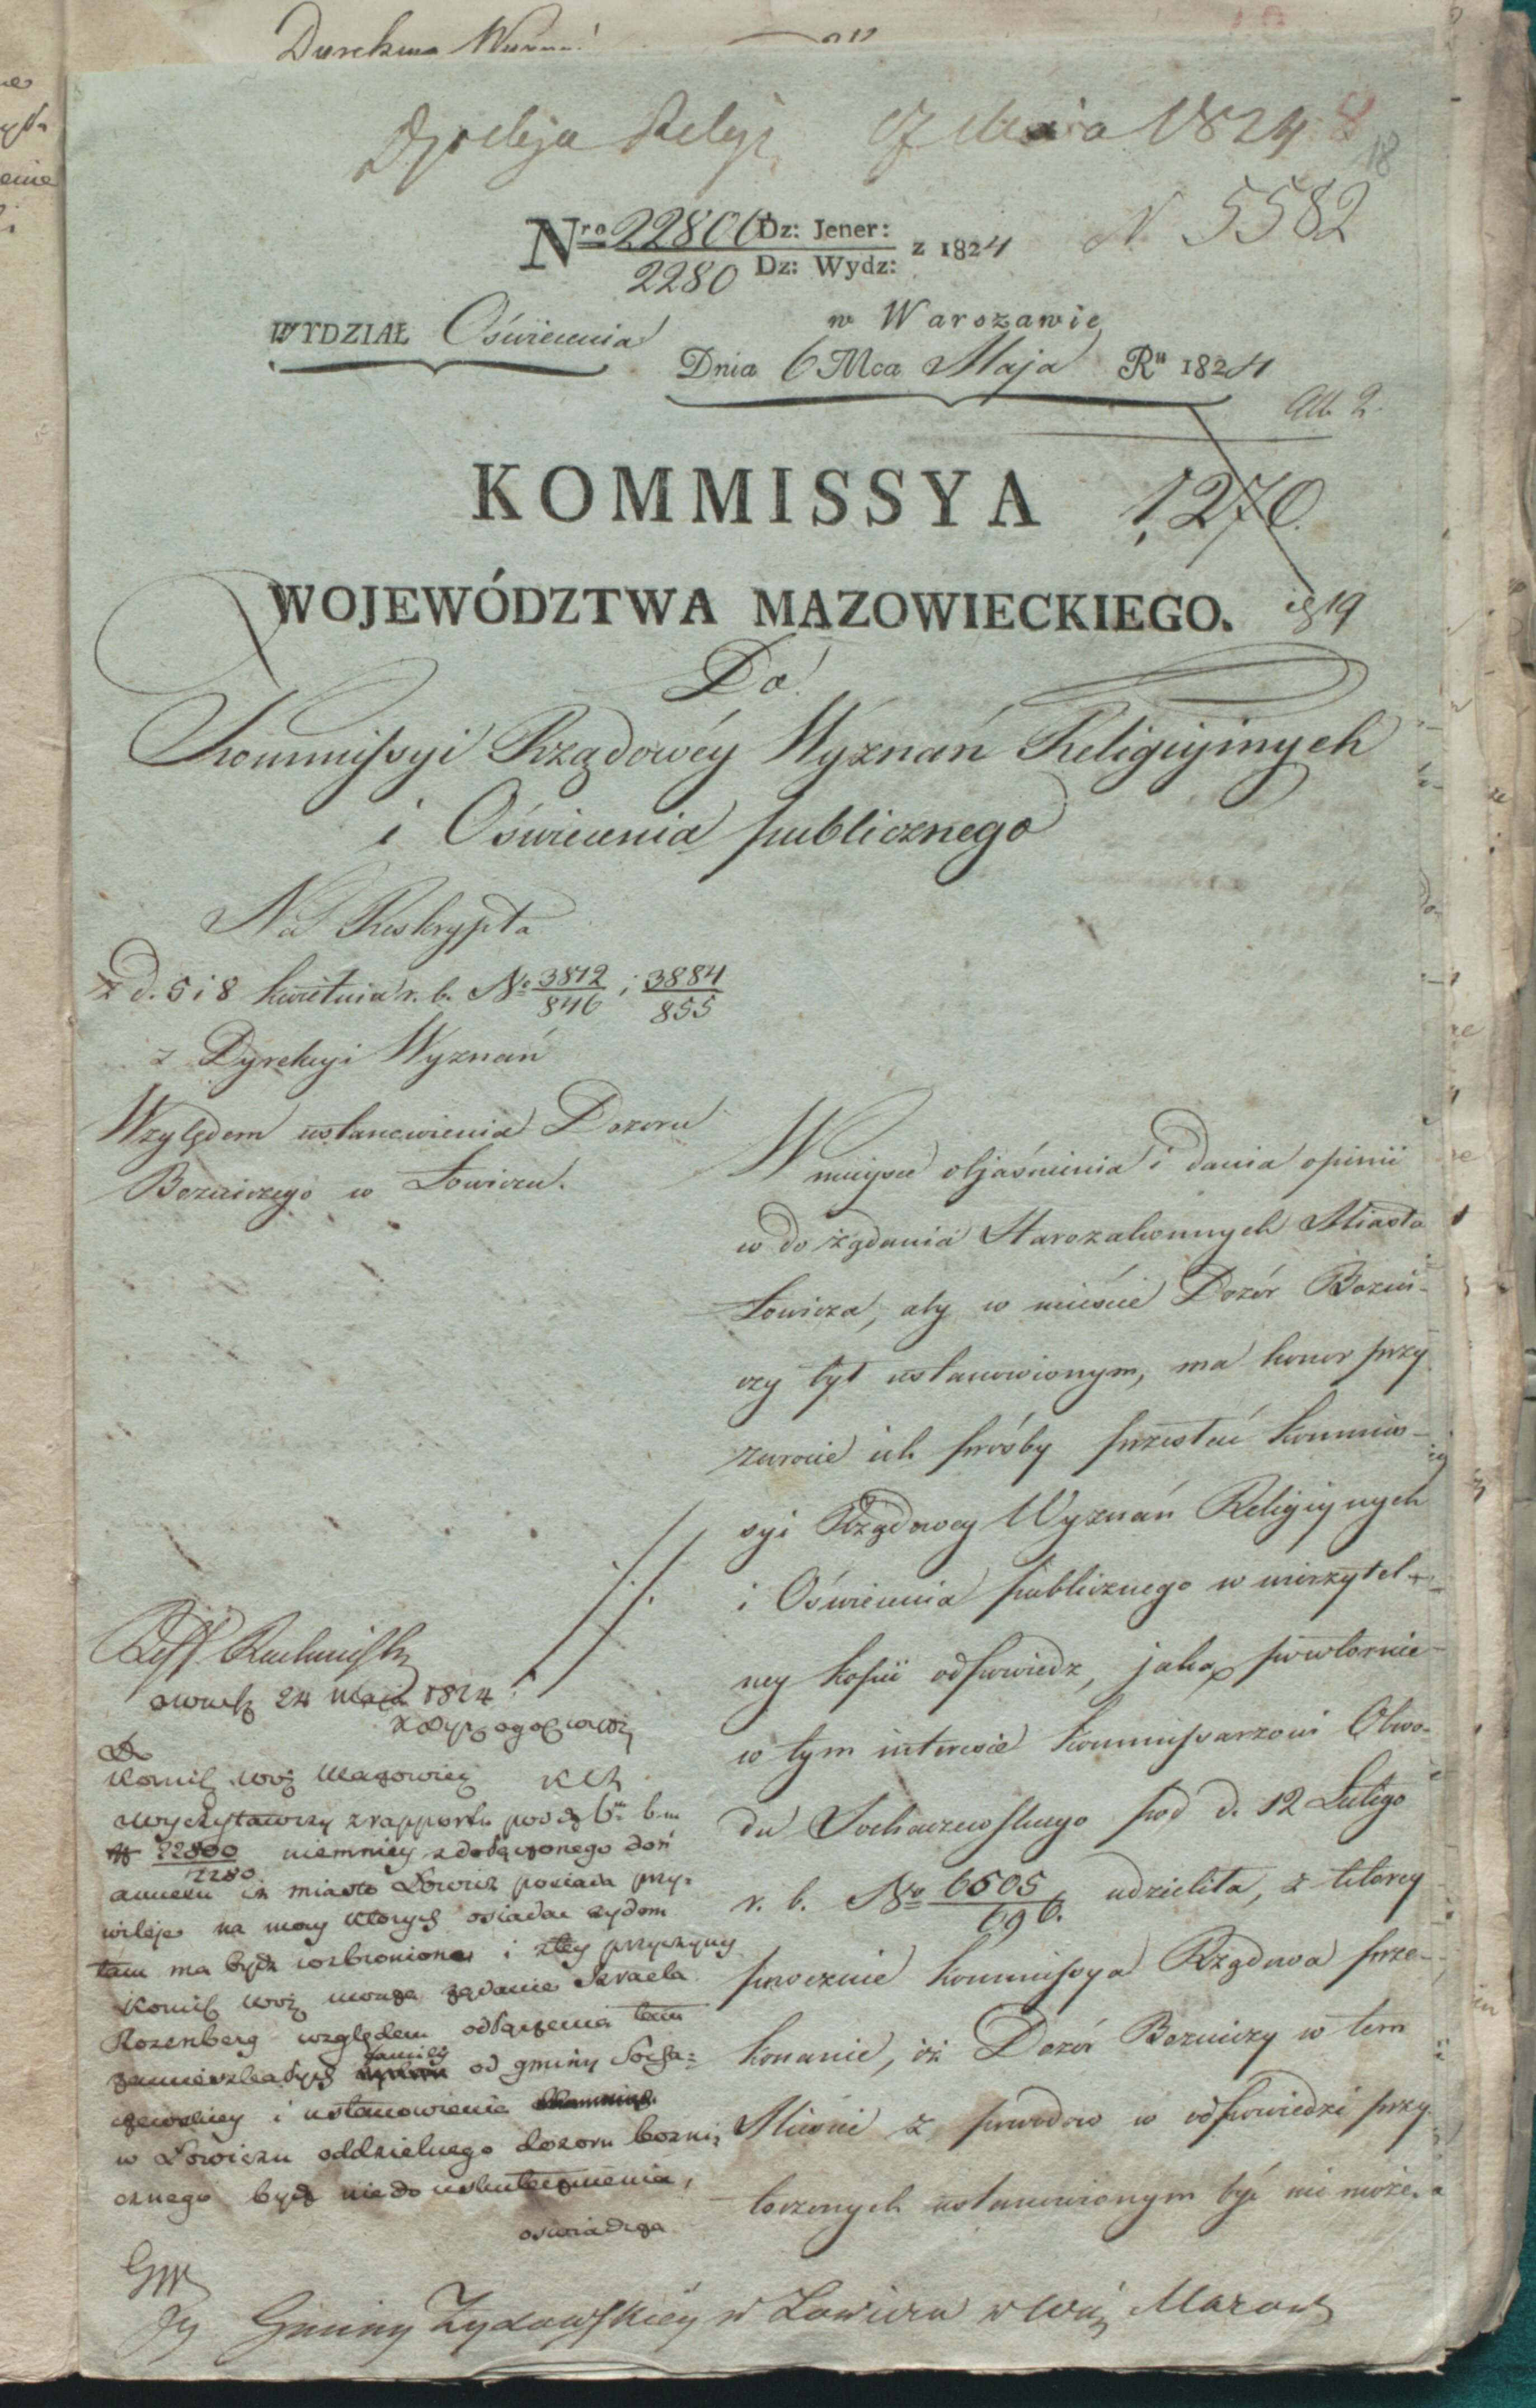 Dyrekcya Wyznań
Dyrekcyja Religi 17 Maia 1824 8
18
N 5582
Nro 22800 Dz: Jener: z 1824
2280 Dz: Wydz:
WYDZIAŁ Oświecenia
w Warszawie
Dnia 6 Mca Maja Ru 1824
All. 2.
KOMMISSYA
1,270.
WOJEWÓDZTWA MAZOWIECKIEGO.
1819
Do
Kommissyi Rządowéy Wyznań Religiynych
i Oświecenia publicznego
Na Reskrypta
z d. 5 i 8 kwietnia r. b. No 3812/846 i 3884/855
z Dyrekcyi Wyznań
Względem ustanowienia Dozoru
Bozniczego w Łowiczu.
W mieysce objaśnienia i dania opinii
w do żądania Starozakonnych Miasta
Łowicza, aby w mieście Dozór Bozni-
czy był ustanowionym, ma honor przy
zwrocie ich prośby przesłać Kommis-
syi Rządowey Wyznań Religiynych
i Oświecenia publicznego w wierzytel-
ney kopii odpowiedz, jaką powtórnie
w tym interesie Kommissarzowi Obwo-
du Sochaczewskiego pod d. 12 Lutego
r. b. No 6505/696. udzieliła, z którey
poweźmie Kommissya Rządowa prze-
konanie, iż Dozór Bozniczy w tem
Mieście z powodów w odpowiedzi przy
toczonych ustanowionym być nie może. a
24 Maja 1824
Do
Komiss Woj Mazowiec
wyczytawszy z rapportu pod d. 6m b.m
N 22800/2280 niemniey z dołączonego doń
annexu iż miasto Łowicz posiada przy-
wileje na mocy których osiadać żydom
tam ma bydź wzbroniono i z tey przyczyny
Komiss Woj uważa żądanie Izraela
Rozenberg względem odłączenia tam
zamieszkałych familij od gminy Socha-
czewskiey i ustanowienie
w Łowiczu oddzielnego dozoru bozni-
cznego bydź nie do uskutecznienia,
oświadcza
Gminy Żydowskiéy w Łowiczu w Woj Mazow